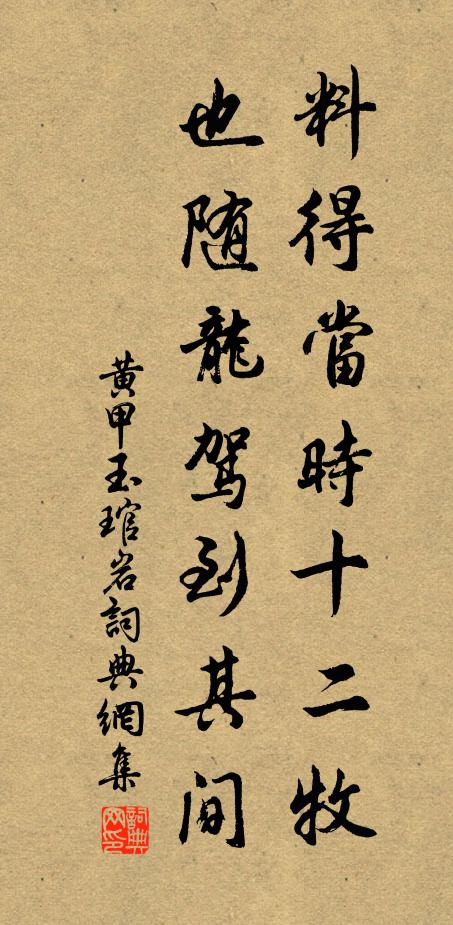 料得當時十二牧
也随龍駕到其間
黄甲玉琯岩詞典網集
詞典
网印